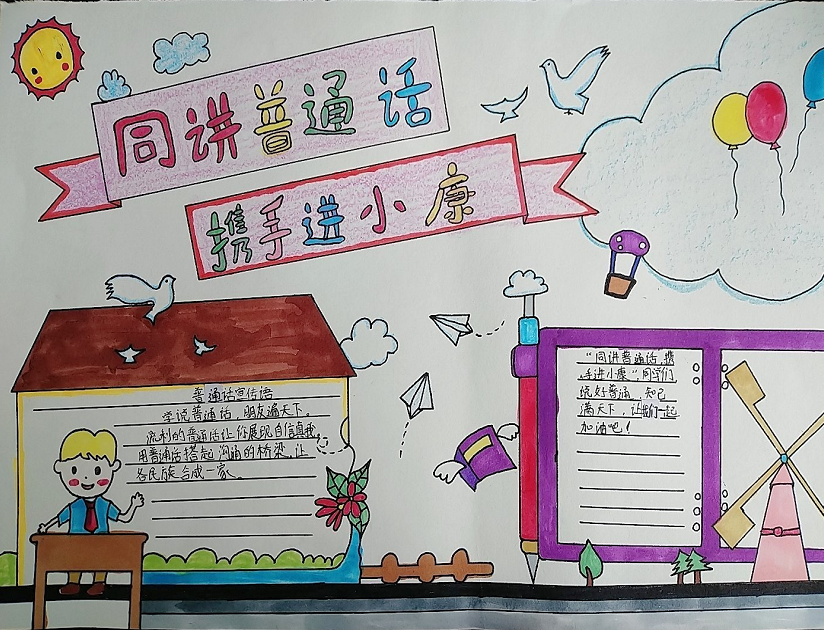 同讲普通话
携手进小康
普通话宣传语
学说普通话，朋友遍天下。
流利的普通话让你展现自信真我。
用普通话搭起沟通的桥梁，让
各民族合成一家。
"同讲普通话，携
手进小康"，同学们
说好普通，知己
满天下，让我们一起
加油吧！